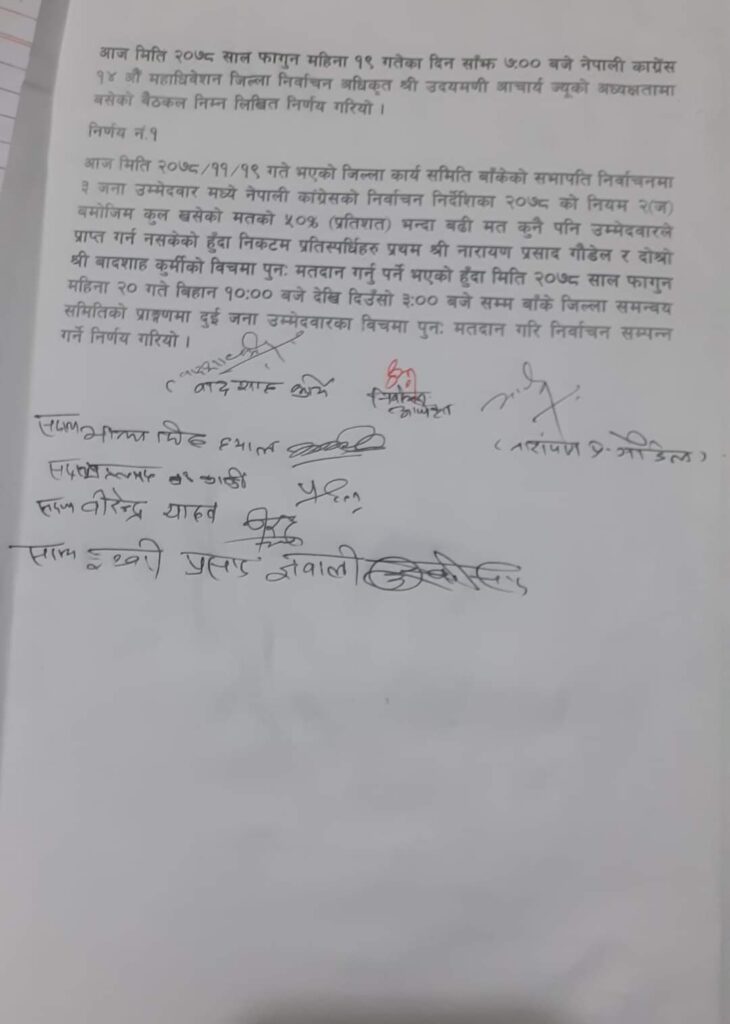 आज मिति २०७८ साल फागुन महिना १९ गतेका दिन साँझ ७:०० बजे नेपाली कांग्रेस
१४ औं महाधिवेशन जिल्ला निर्वाचन अधिकृत श्री उदयमणी आचार्य ज्यूको अध्यक्षतामा
बसेको बैठकल निम्न लिखित निर्णय गरियो ।
निर्णय नं.१
आज मिति २०७८/११/१९ गते भएको जिल्ला कार्य समिति बाँकेको सभापति निर्वाचनमा
३ जना उम्मेदवार मध्ये नेपाली कांग्रेसको निर्वाचन निर्देशिका २०७८ को नियम २(ज)
बमोजिम कुल खसेको मतको ५०% (प्रतिशत) भन्दा बढी मत कुनै पनि उम्मेदवारले
प्राप्त गर्न नसकेको हुँदा निकटम प्रतिस्पर्धिहरु प्रथम श्री नारायण प्रसाद गौडेल र दोश्रो
श्री बादशाह कुर्मीको विचमा पुनः मतदान गर्नु पर्ने भएको हुँदा मिति २०७८ साल फागुन
महिना २० गते बिहान १०:०० बजे देखि दिउँसो ३:०० बजे सम्म बाँके जिल्ला समन्वय
समितिको प्राङ्गणमा दुई जना उम्मेदवारका विचमा पुनः मतदान गरि निर्वाचन सम्पन्न
गर्ने निर्णय गरियो ।
(बादशाह कुर्मि
(नारायण प्र. गौडेल)
वीरेन्द्र यादव
प्रसाद ज्ञवाली